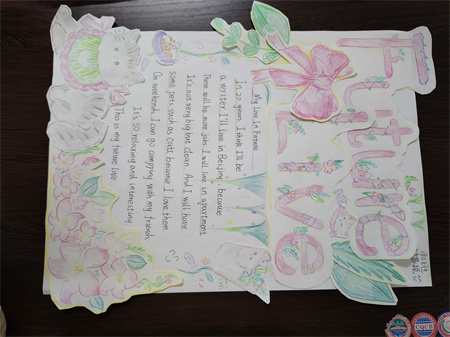 Future
In 20 years, I think I'll be
a writer. I'll live in Beijing, because
There will be more jobs. I will live in apartment
It's not very big but clean. And I will have
some pets, such as cats because I love them
On weekends, I can go camping with my friends
It's so relaxing and interesting.
This is my future
CQCB